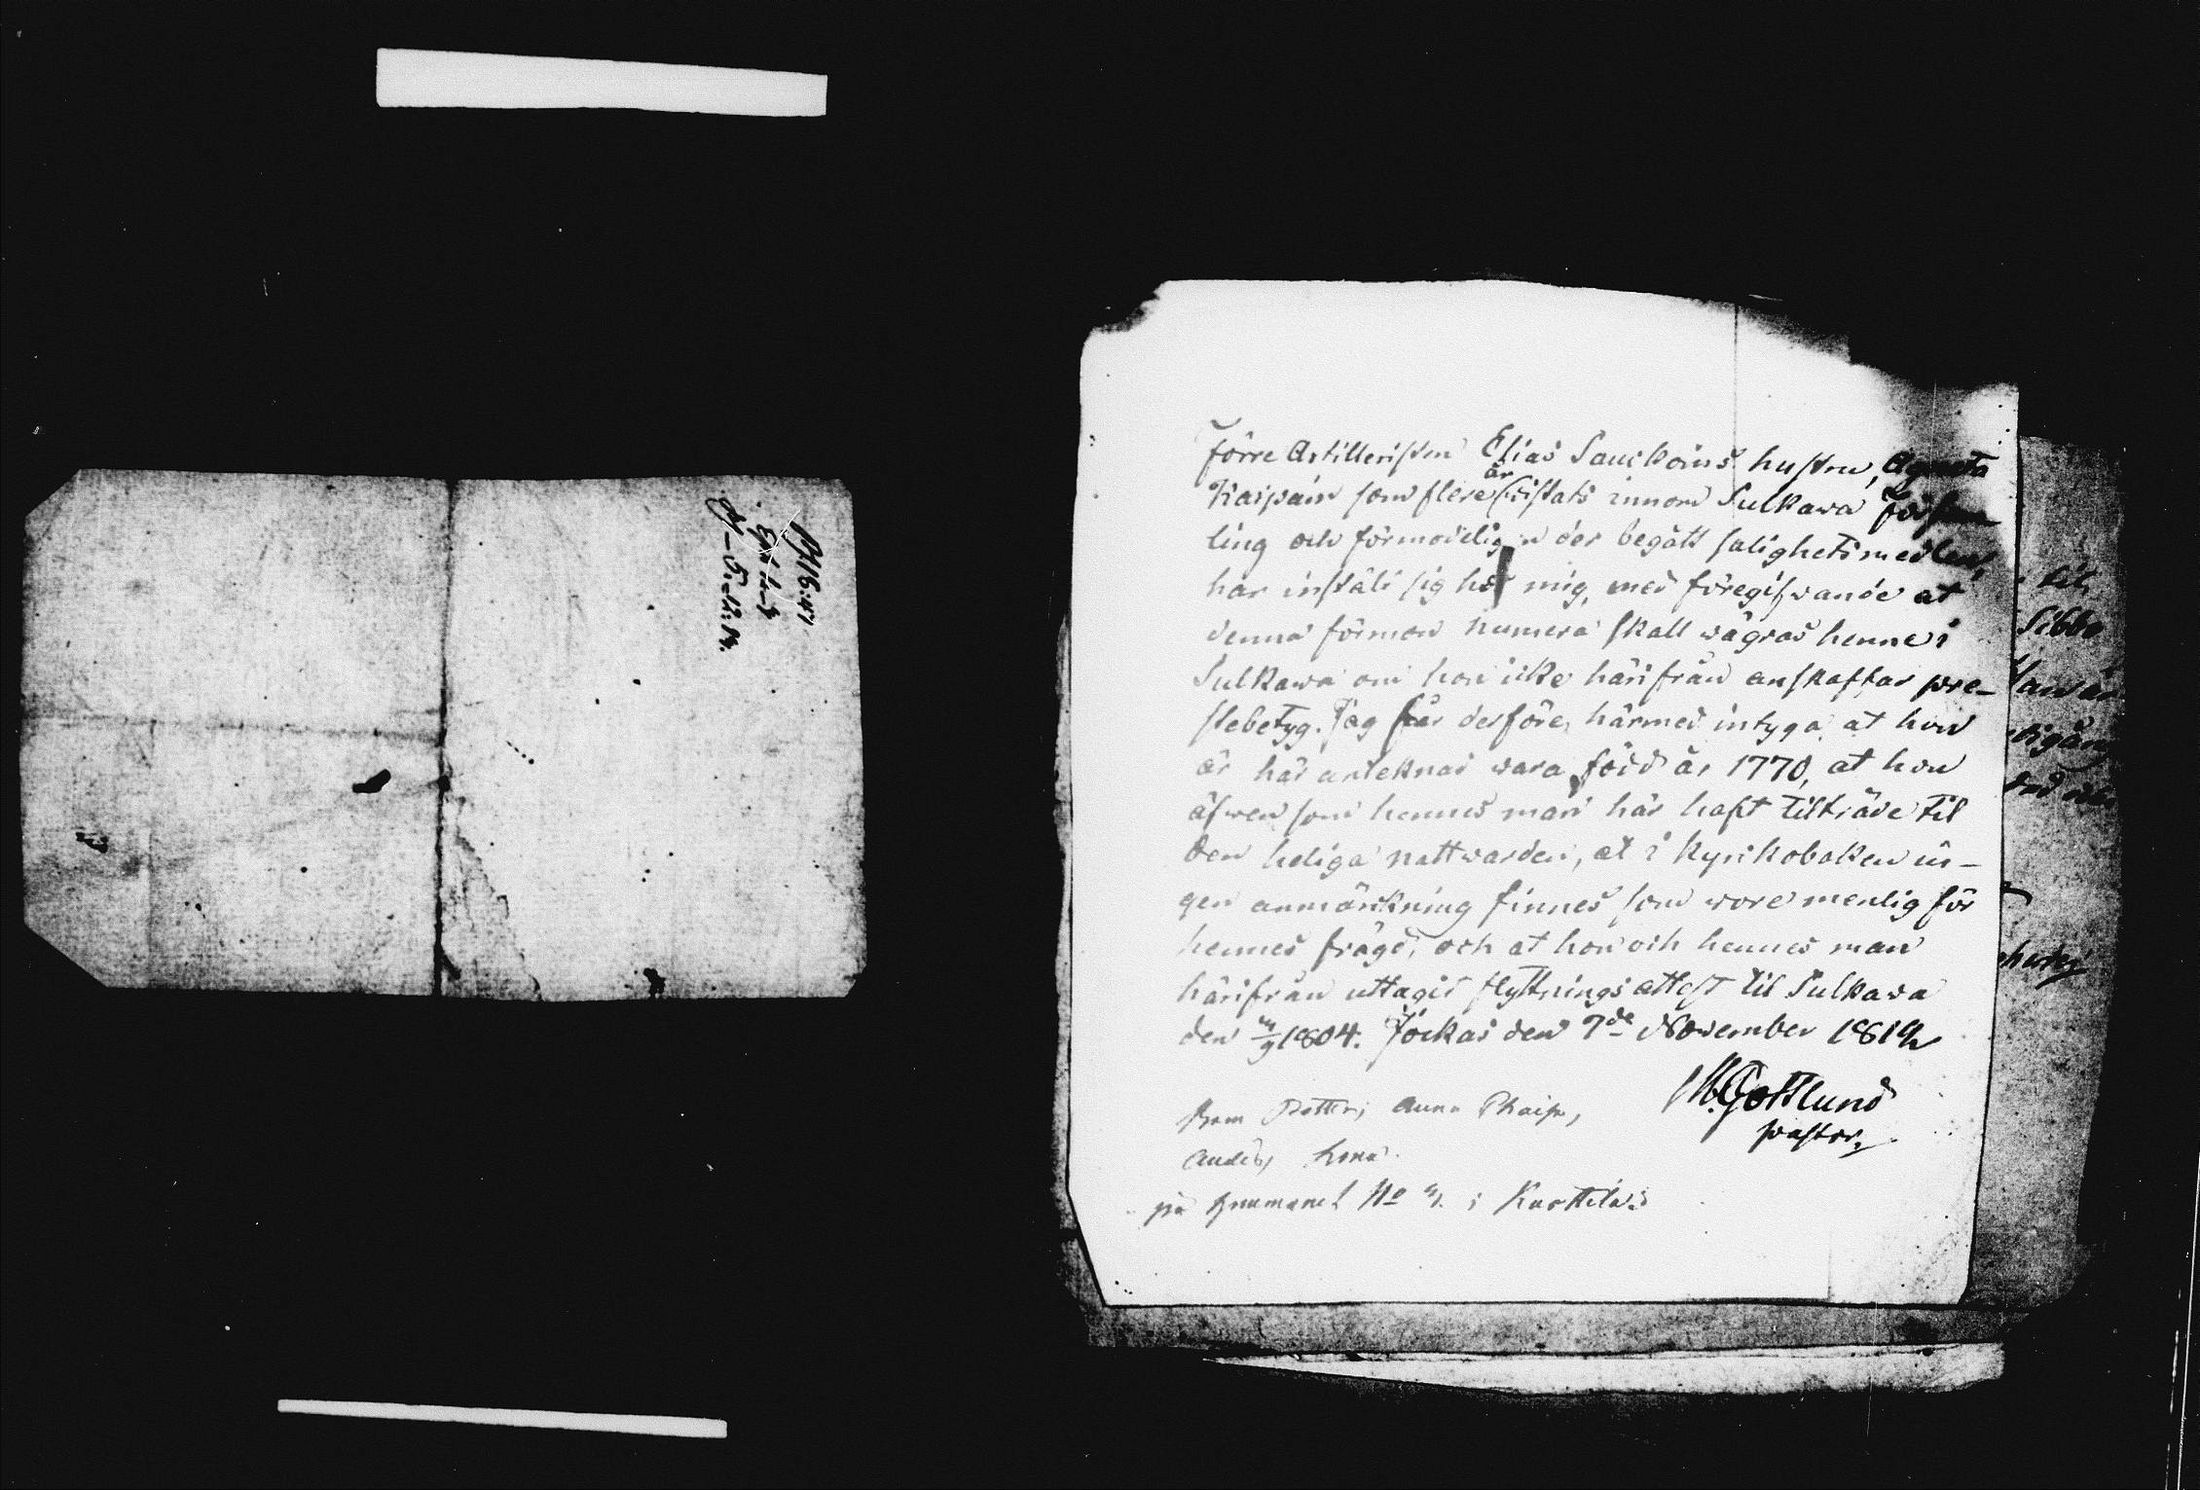 Förre Artilleristen Elias Sauckoins hustru, Agneta
Kaipain som flere år wistats innom Sulkawa Församm
ling och förmodeligen der begått salighetsmedlen,
har instält sig hos mig, med föregifwande at
denna förmon numera skall wägras henne i
Sulkawa om hon icke härifrån anskaffar pre-
stebetyg. Jag får derföre, härmed intyga, at hon
är här anteknad wara född år 1770, at hon
äfwen som hennes man här haft tilträde til
den heliga nattwarden, at i kyrkoboken in-
gen anmärkning finnes som wore menlig för
hennes frägd, och at hon och hennes man
härifrån uttagit flyttnings attest til Sulkawa
den 1804. Jockas den 7de November 1819
M. Gottlund
pastor.
Barn Petter, Anna
Anders, Lena
på No i Kurttila
til
Sibbo